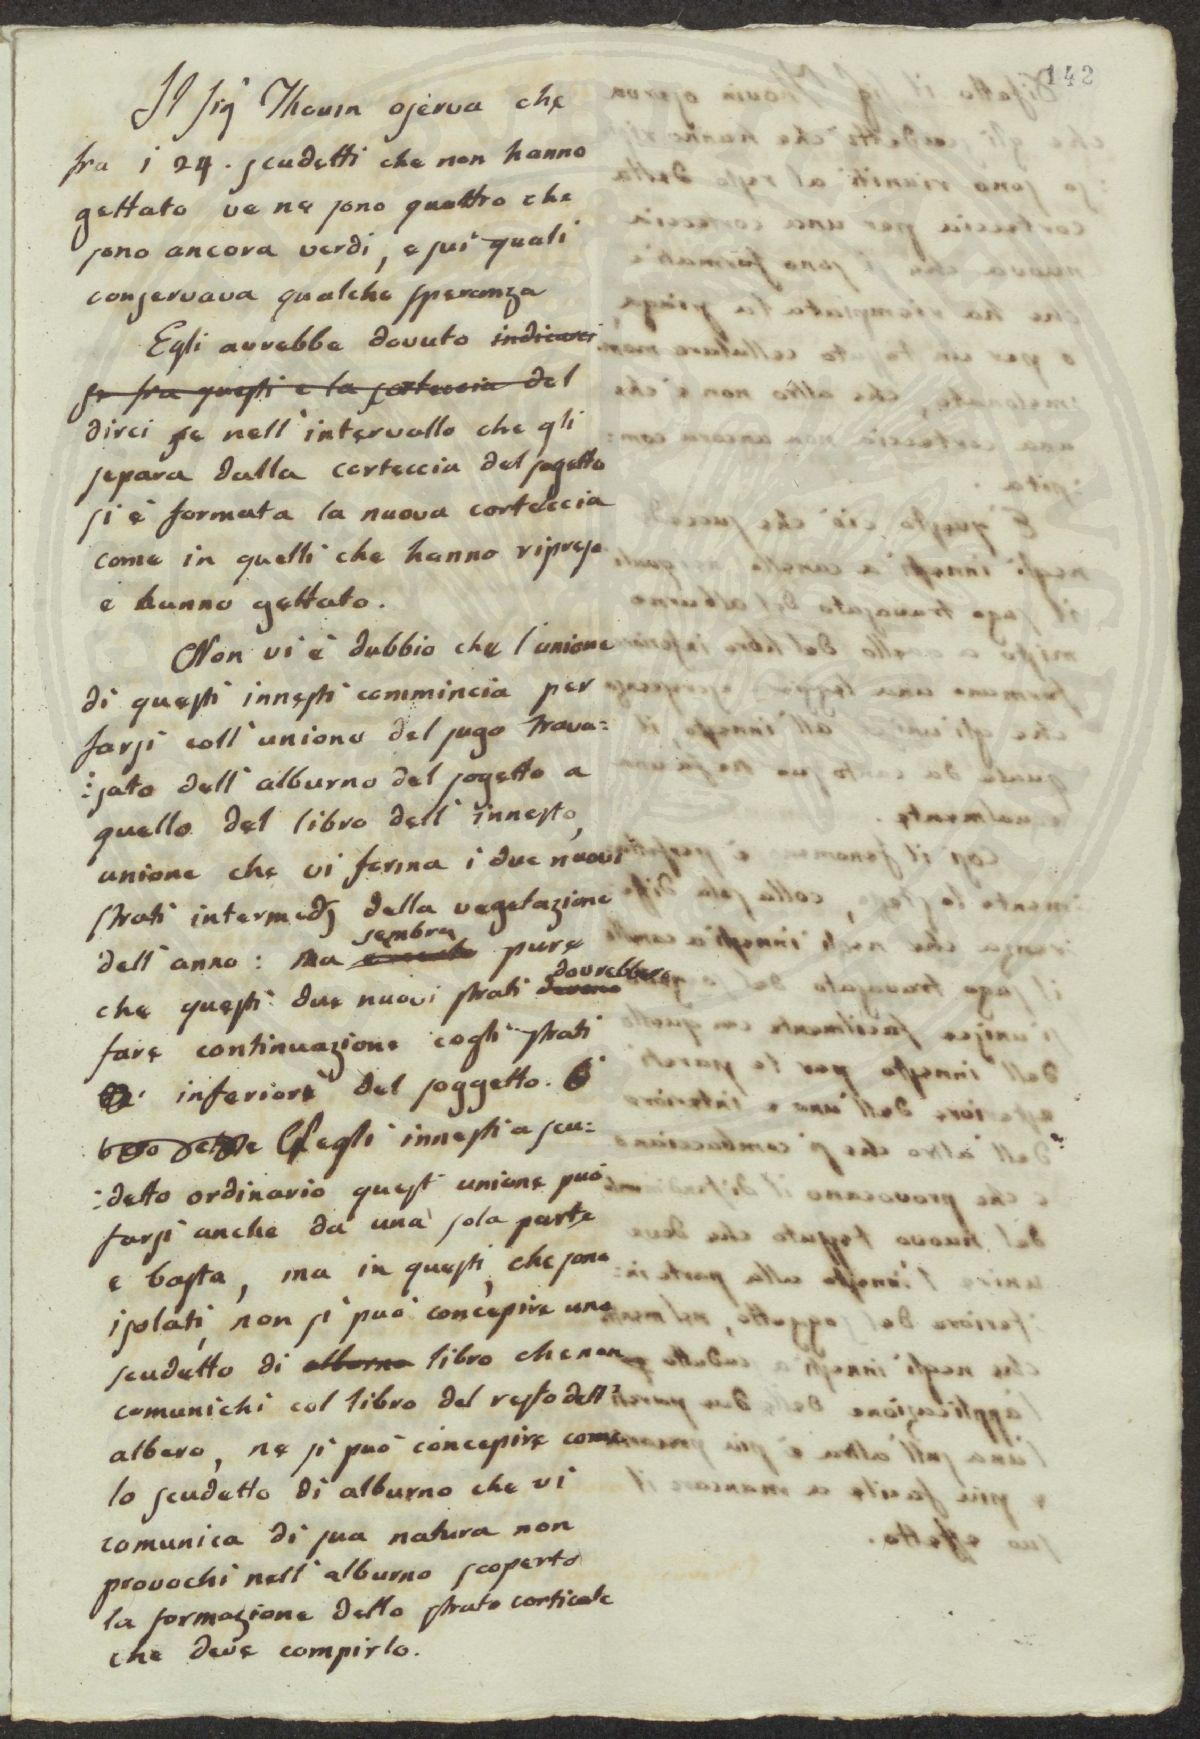 142
Il Sig.r Thouin osserva che
fra i 24. scudetti che non hanno
gettato ve ne sono quattro che
sono ancora verdi, e sui quali
conservava qualche speranza
Egli avrebbe dovuto indicarci
se fra questi e la corteccia del
dirci se nell'intervallo che gli
separa dalla corteccia del sogetto
si è formata la nuova corteccia
come in quelli che hanno ripreso
e hanno gettato.
Non vi è dubbio che l'unione
di questi innesti commincia per
farsi coll'unione del sugo trava=
:sato dell'alburno del sogetto a
quello del libro dell'innesto,
unione che vi ferma i due nuovi
strati intermedj della vegetazione
sembra
dell'anno: ma pure
dovrebbero
che questi due nuovi strati devono
fare continuazione cogli strati
inferiori del soggetto.
Negli innesti a scu=
:detto ordinario quest'unione può
farsi anche da una sola parte
e basta, ma in questi, che sono
isolati, non si può concepire uno
scudetto di alburno libro che non
comunichi col libro del resto dell'
albero, ne si può concepire come
lo scudetto di alburno che vi
comunica di sua natura non
provochi nell'alburno scoperto
la formazione dello strato corticale
che deve compirlo.